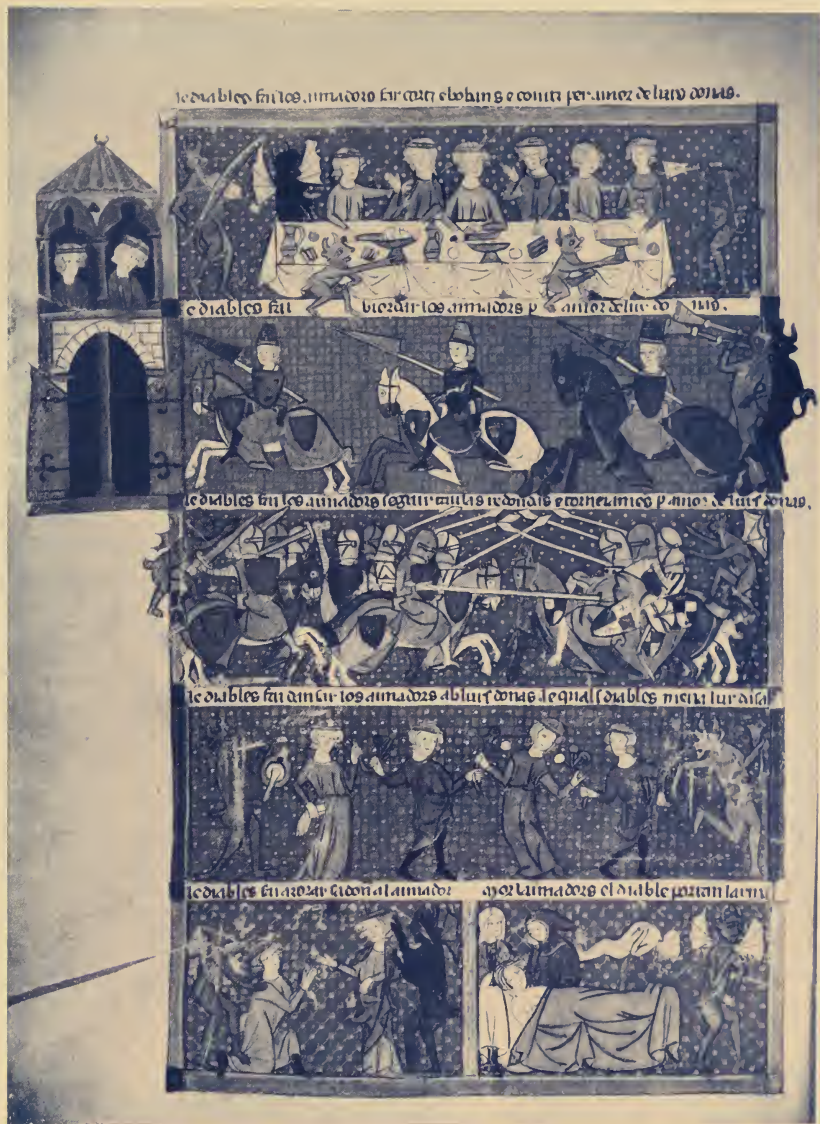 le diables fai los aimadors far cortz e bobans e convit per amor de lurs donas.
le diables fai biordar los aimadors p amor de lur donas.
le diables fai los aimadors seguir taulas redondas e torneiamens p amor de lurs donas.
le diables fai dansar los aimadors ab lurs donas. le quals diables mena lur dansa
le diables fai adorar sa don al aimador
mor l aimadors el diable portan l arma